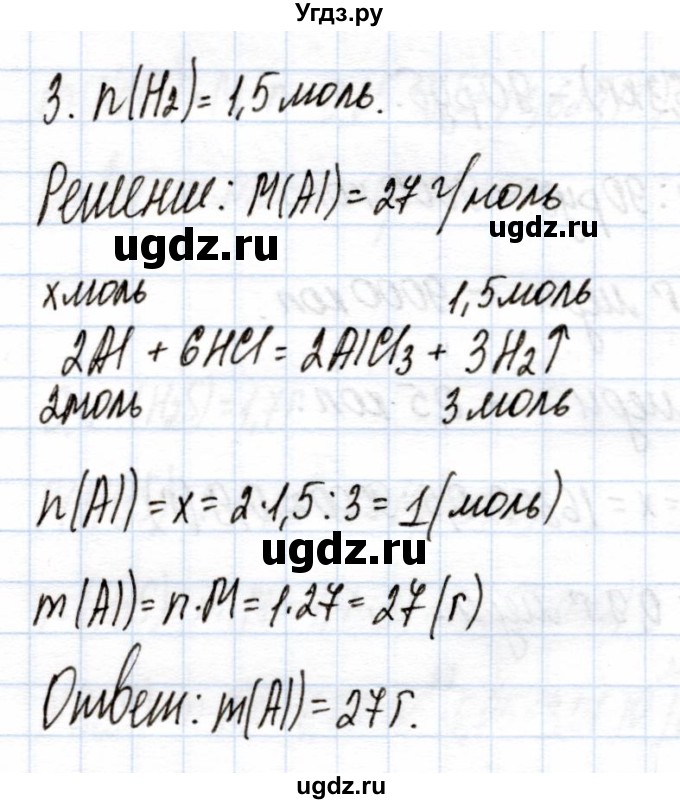 Угдз.ру
3. n(H₂) = 1,5 моль.
Решение: M(Al) = 27 г/моль
ugdz.ru
ugdz.ru
x моль 1,5 моль
2Al + 6HCl = 2AlCl₃ + 3H₂↑
2 моль 3 моль
n(Al) = x = 2·1,5:3 = 1 (моль)
ugdz.ru
m(Al) = n·M = 1·27 = 27 (г)
Ответ: m(Al) = 27 г.
ugdz.ru
ugdz.ru